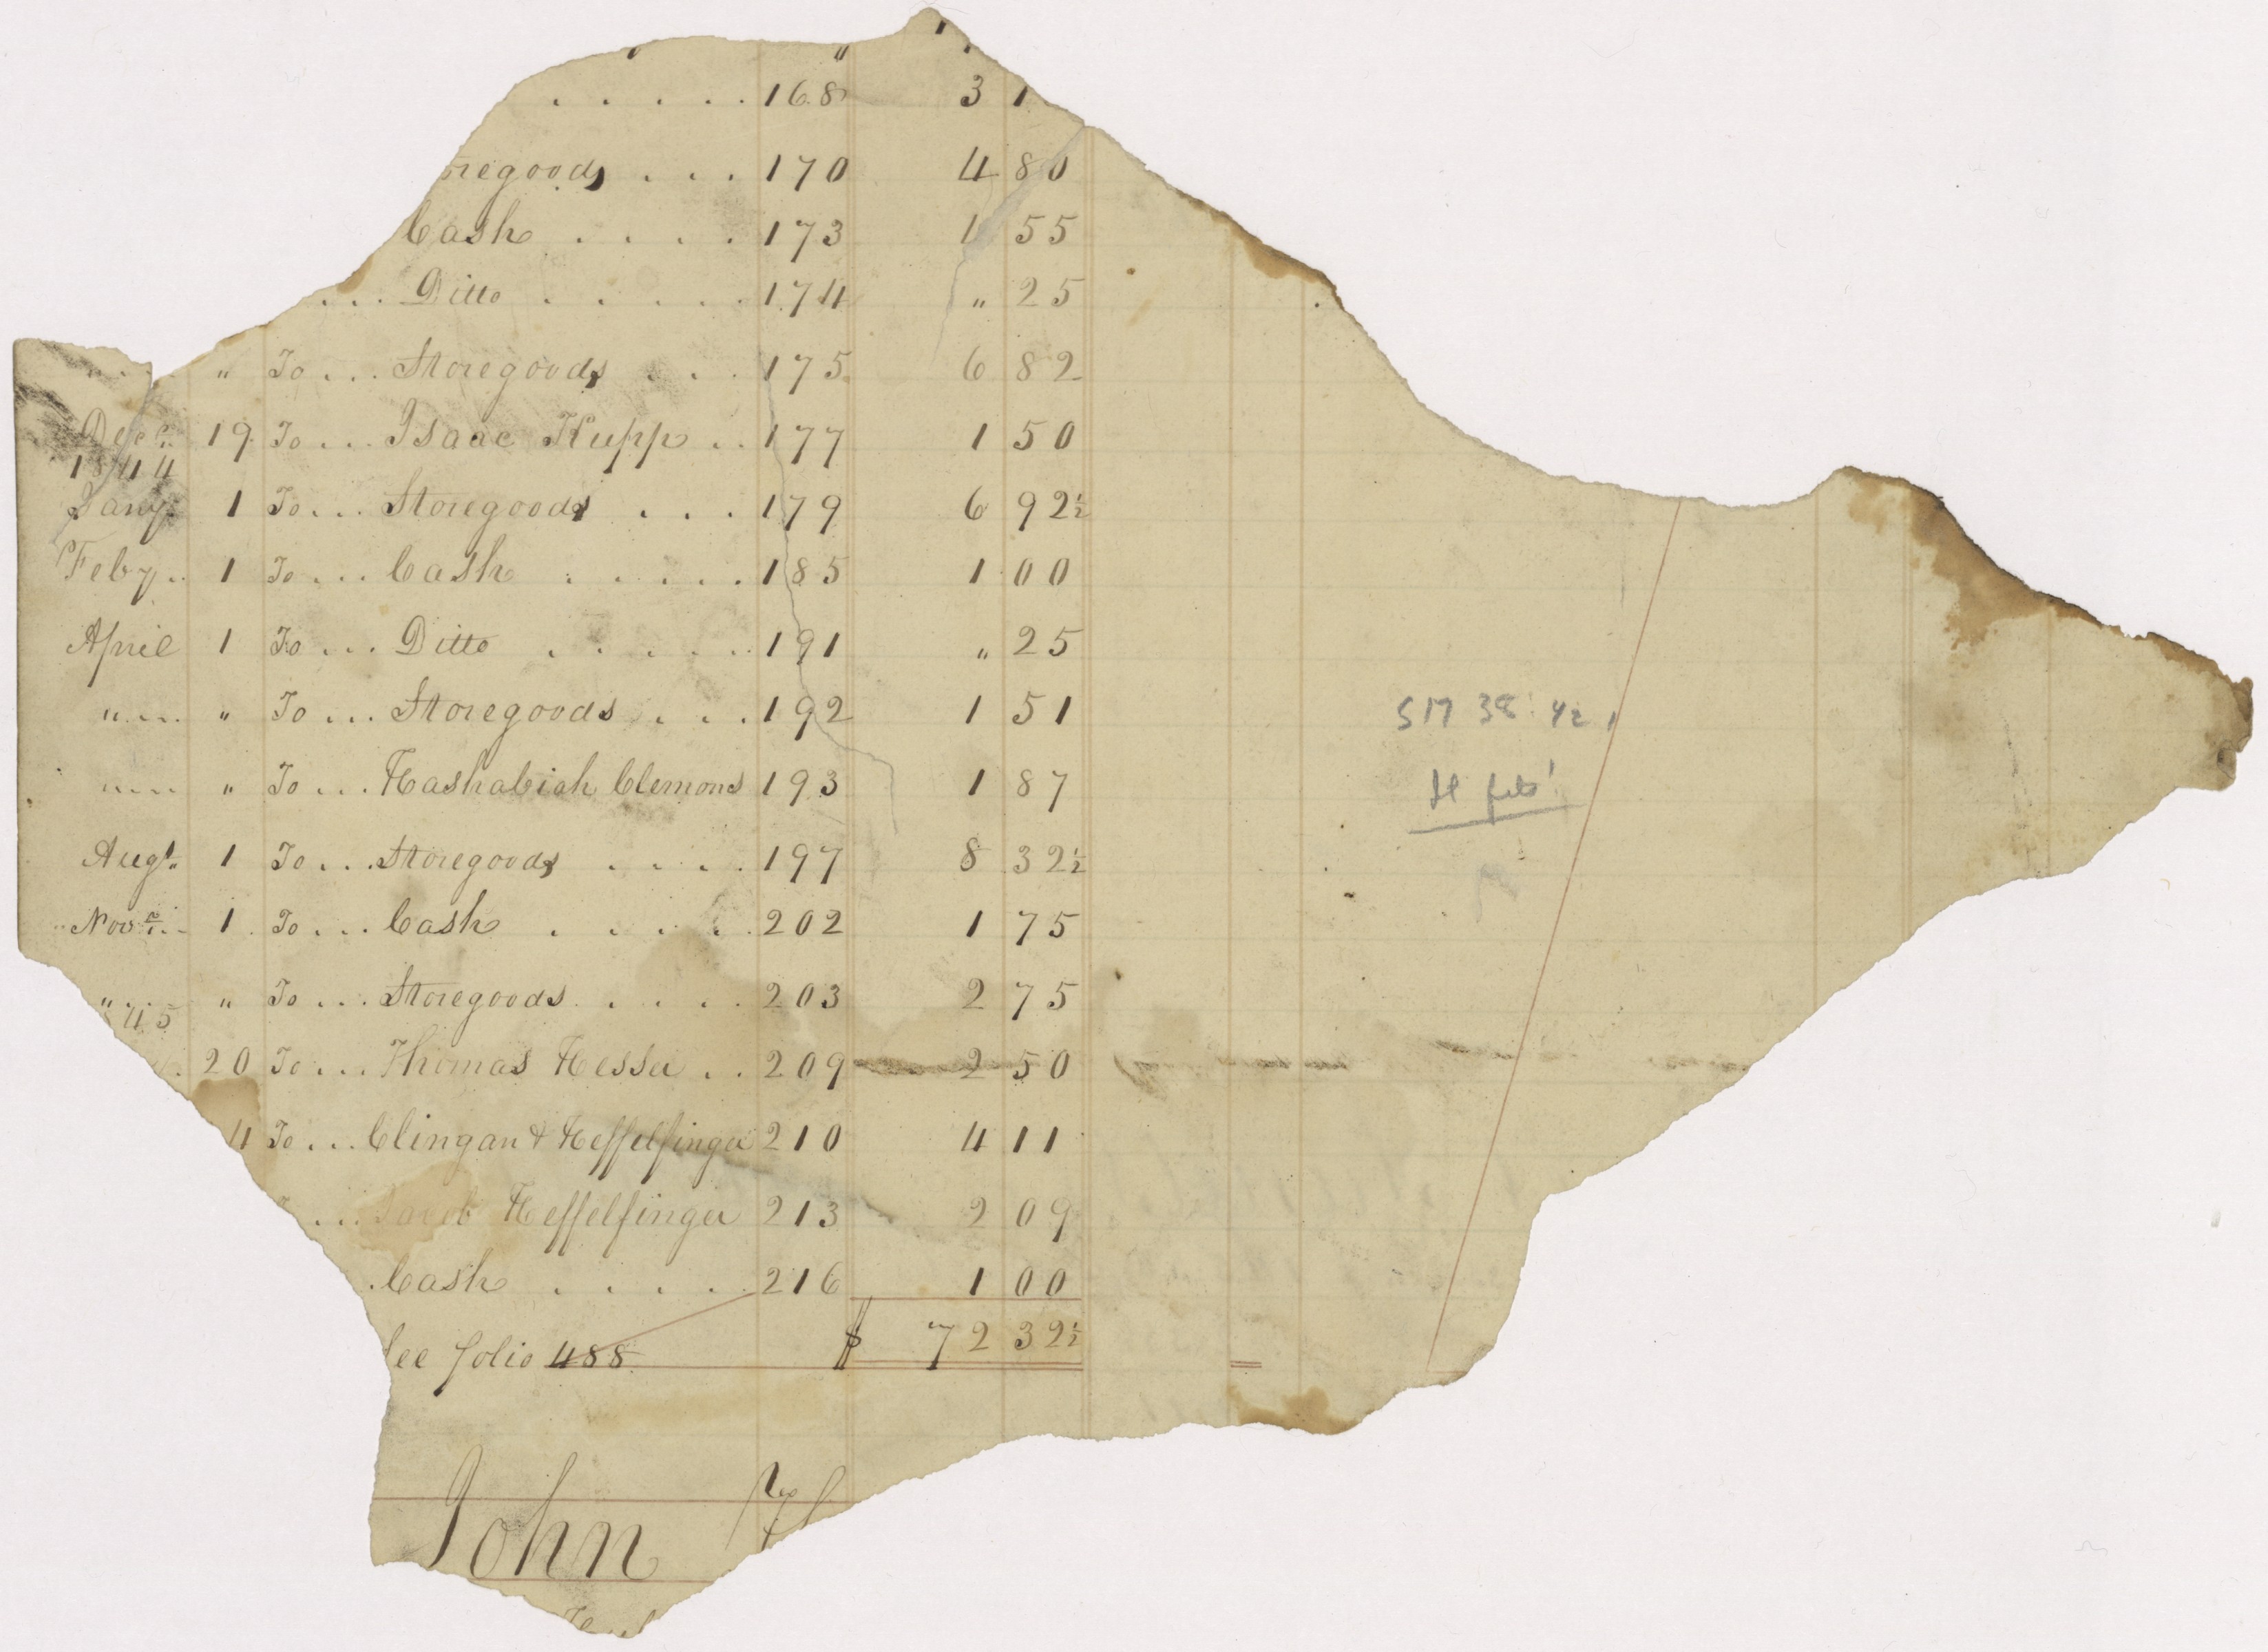 "
. . . . . 168 3 1
oregoods . . . 170 4 80
Cash . . . . 173 1 55
. . . Ditto . . . . . 174 " 25
" To . . . Storegoods . . . 175 6 82
Decr. 19 To . . . Isaac Kupp . . 177 1 50
1844
Jany. 1 To . . . Storegoods . . . 179 6 92½
Feby . . 1 To . . . Cash . . . . . 185 1 00
April 1 To . . . Ditto . . . . . 191 " 25
" . . . " To . . . Storegoods . . . 192 1 51
" . . . " To . . . Hashabiah Clemons 193 1 87
Augt. 1 To . . . Storegoods . . . . 197 8 32½
Novr. . . 1 To . . . Cash . . . . . 202 1 75
" . . . " To . . . Storegoods . . . . 203 2 75
45
20 To . . . Thomas Hesser . . 209 2 50
4 To . . . Clingan & Heffelfinger 210 4 11
. . . Jacob Heffelfinger 213 2 09
. Cash . . . . . 216 1 00
See folio 488 $ 72 32½
John
517 38 42